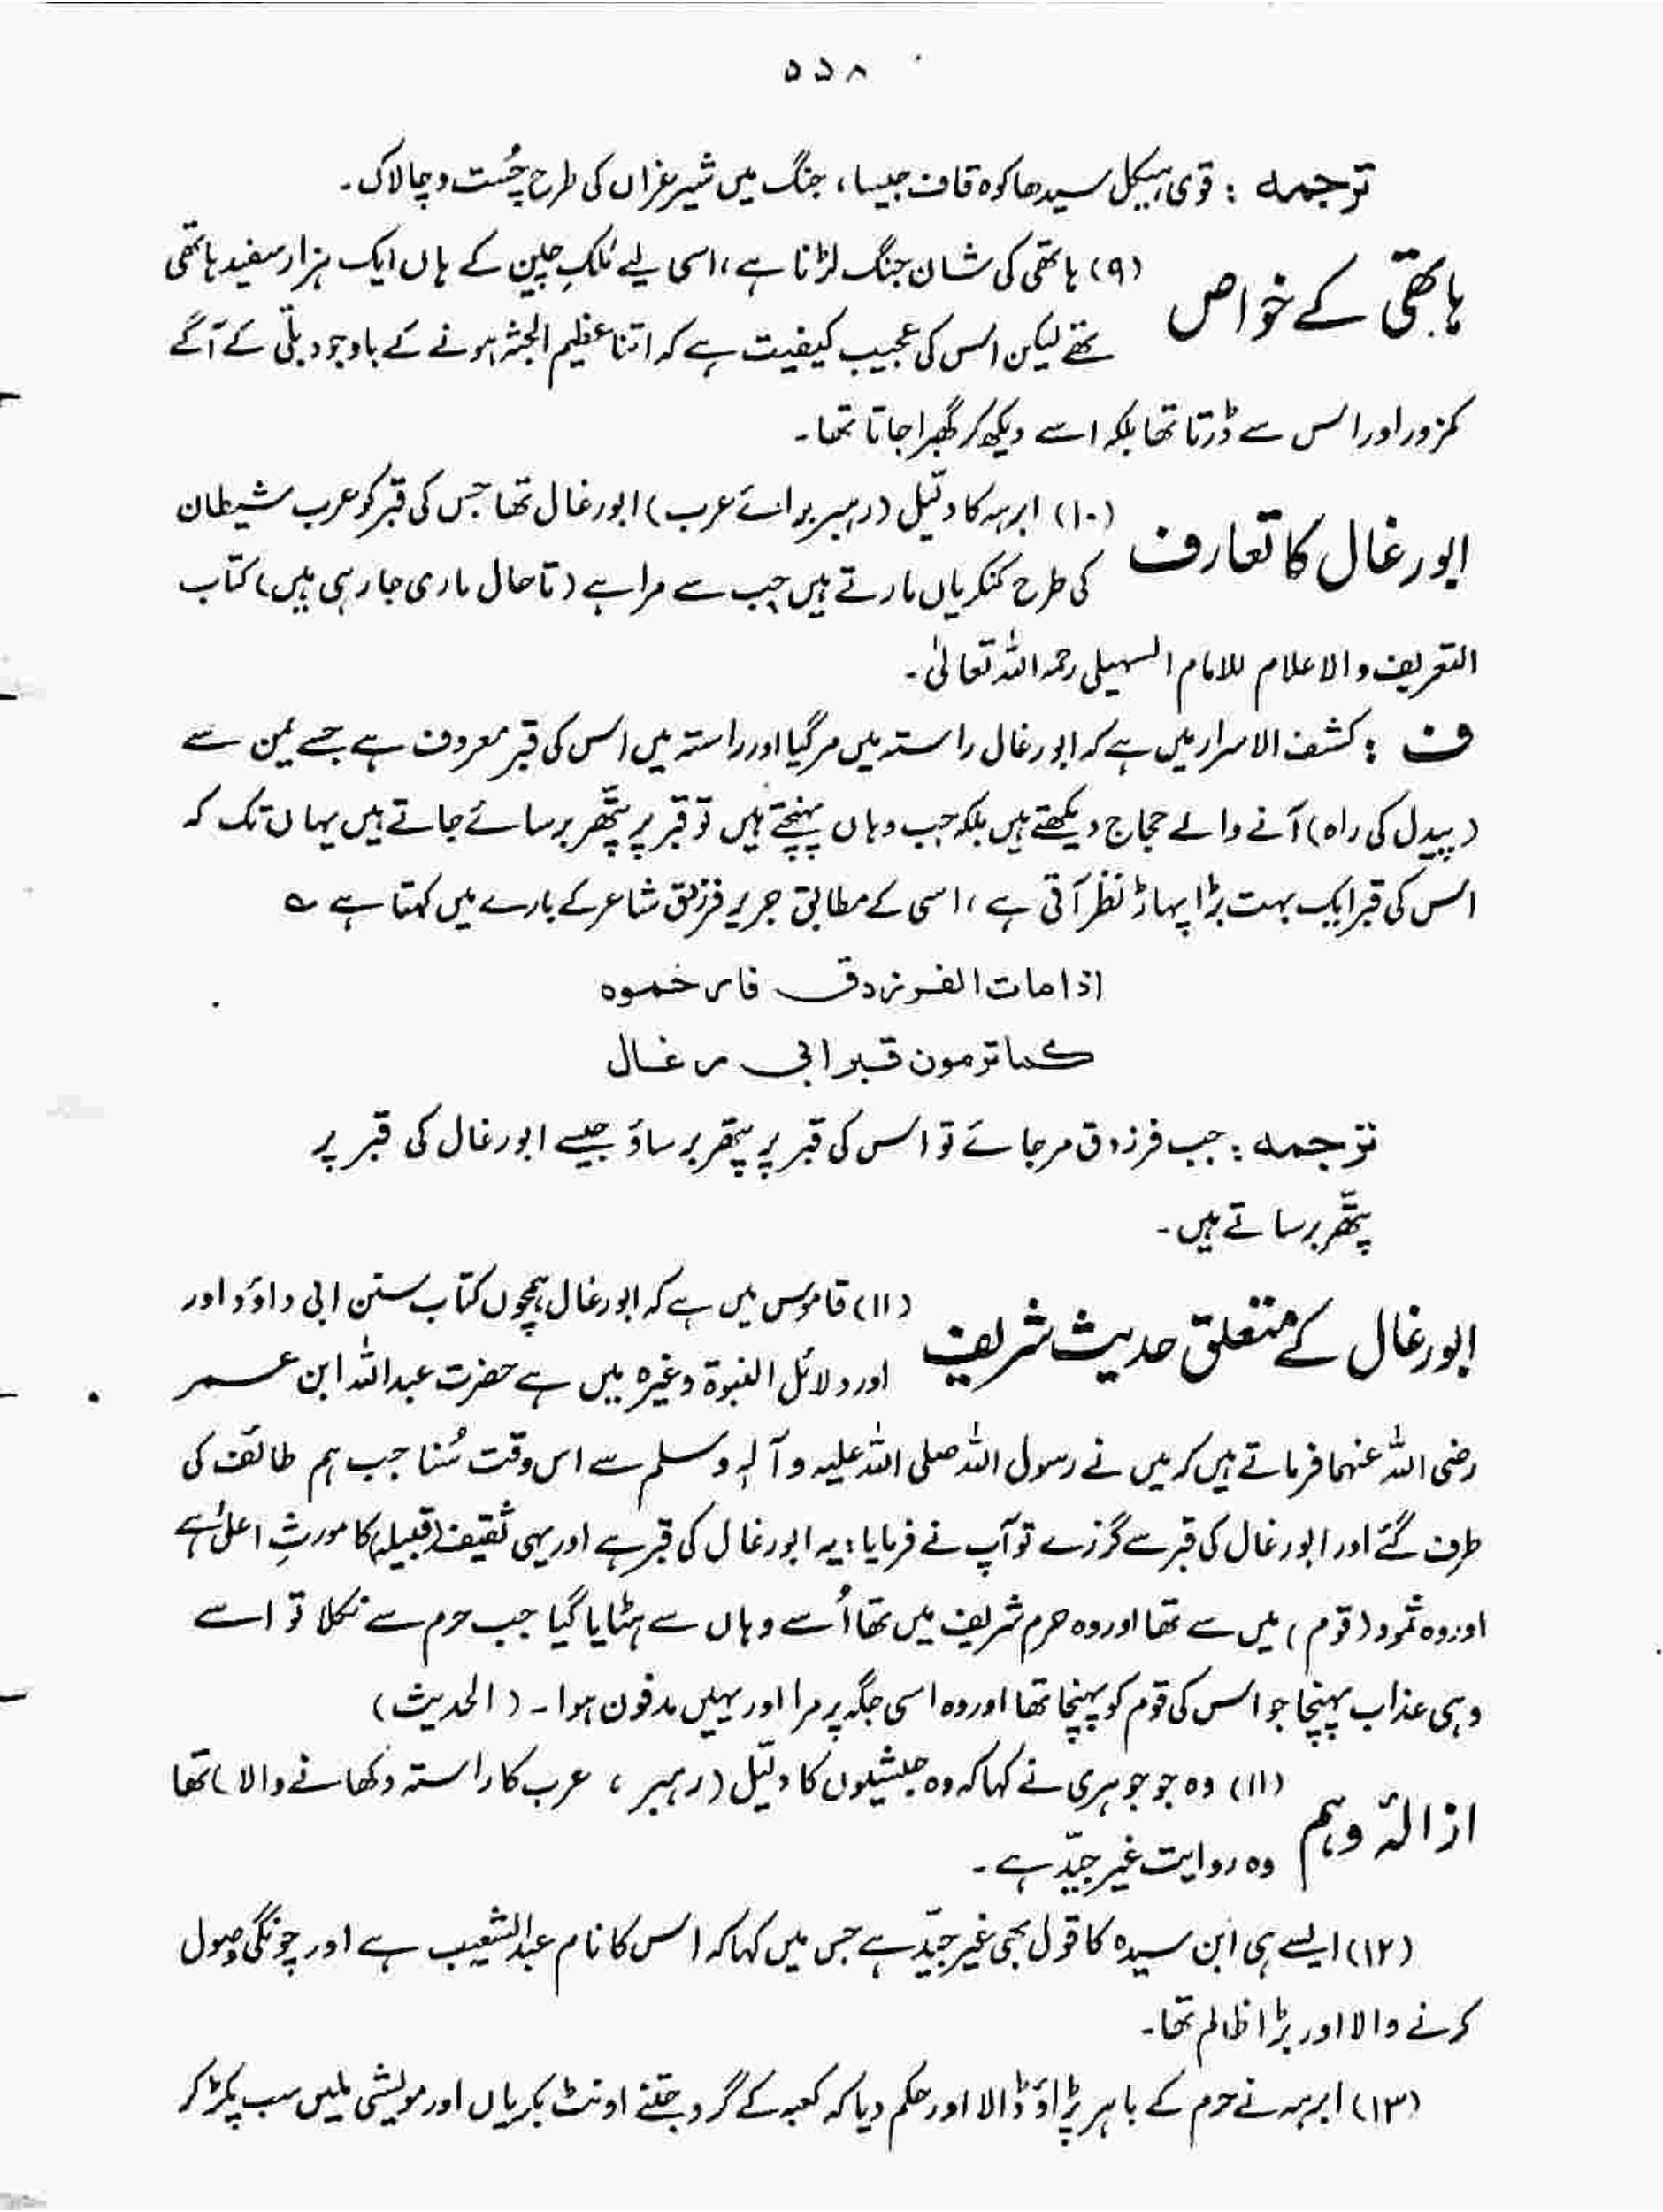 ۵۵۸
ترجمہ : قوی ہیکل سیدھا کوہ قاف جیسا، جنگ میں شیر غراں کی طرح چُست و چالاک ۔
ہاتھی کے خواص
(۹) ہاتھی کی شان جنگ لڑانا ہے، اسی لیے مُلکِ چین کے ہاں ایک ہزار سفید ہاتھی
تھے لیکن اس کی عجیب کیفیت ہے کہ اتنا عظیم الجثہ ہونے کے باوجود بلّی کے آگے
کمزور اور اس سے ڈرتا تھا بلکہ اسے دیکھ کر گھبرا جاتا تھا۔
ابورغال کا تعارف
(۱۰) ابرہہ کا دلیل (رہبر برائے عرب) ابورغال تھا جس کی قبر کو عرب شیطان
کی طرح کنکریاں مارتے ہیں جب سے مرا ہے (تاحال ماری جا رہی ہیں) کتاب
التعریف والاعلام للامام السہیلی رحمہ اللہ تعالیٰ ۔
ف : کشف الاسرار میں ہے کہ ابورغال راستہ میں مرگیا اور راستہ میں اس کی قبر معروف ہے جسے یمن سے
(پیدل کی راہ) آنے والے حجاج دیکھتے ہیں بلکہ جب وہاں پہنچتے ہیں تو قبر پر پتّھر برسائے جاتے ہیں یہاں تک کہ
اس کی قبر ایک بہت بڑا پہاڑ نظر آتی ہے، اسی کے مطابق جریر فرزدق شاعر کے بارے میں کہتا ہے ؎
اذا مات الفرزدق فارخموه
کما ترمون قبر ابی رغال
ترجمہ : جب فرزدق مرجائے تو اس کی قبر پر پتھر برساؤ جیسے ابورغال کی قبر پر
پتّھر برساتے ہیں۔
ابورغال کے متعلق حدیث شریف
(۱۱) قاموس میں ہے کہ ابورغال ہمچوں کتاب سنن ابی داؤد اور
اور دلائل النبوۃ وغیرہ میں ہے حضرت عبداللہ ابن عمر
رضی اللہ عنہما فرماتے ہیں کہ میں نے رسول اللہ صلی اللہ علیہ وآلہٖ وسلم سے اس وقت سُنا جب ہم طائف کی
طرف گئے اور ابورغال کی قبر سے گزرے تو آپ نے فرمایا: یہ ابورغال کی قبر ہے اور یہی ثقیف (قبیلہ) کا مورثِ اعلیٰ ہے
اور وہ ثمود (قوم) میں سے تھا اور وہ حرم شریف میں تھا اُسے وہاں سے ہٹایا گیا جب حرم سے نکلا تو اسے
وہی عذاب پہنچا جو اس کی قوم کو پہنچا تھا اور وہ اسی جگہ پر مرا اور یہیں مدفون ہوا۔ (الحدیث)
ازالۂ وہم
(۱۱) وہ جو جوہری نے کہا کہ وہ حبشیوں کا دلیل (رہبر، عرب کا راستہ دکھانے والا) تھا
وہ روایت غیر جیّد ہے ۔
(۱۲) ایسے ہی ابن سیدہ کا قول بھی غیر جیّد ہے جس میں کہا کہ اس کا نام عبدالشعیب ہے اور چونگی وصول
کرنے والا اور بڑا ظالم تھا۔
(۱۳) ابرہہ نے حرم کے باہر پڑاؤ ڈالا اور حکم دیا کہ کعبہ کے گرد جتنے اونٹ بکریاں اور مویشی ملیں سب پکڑ کر